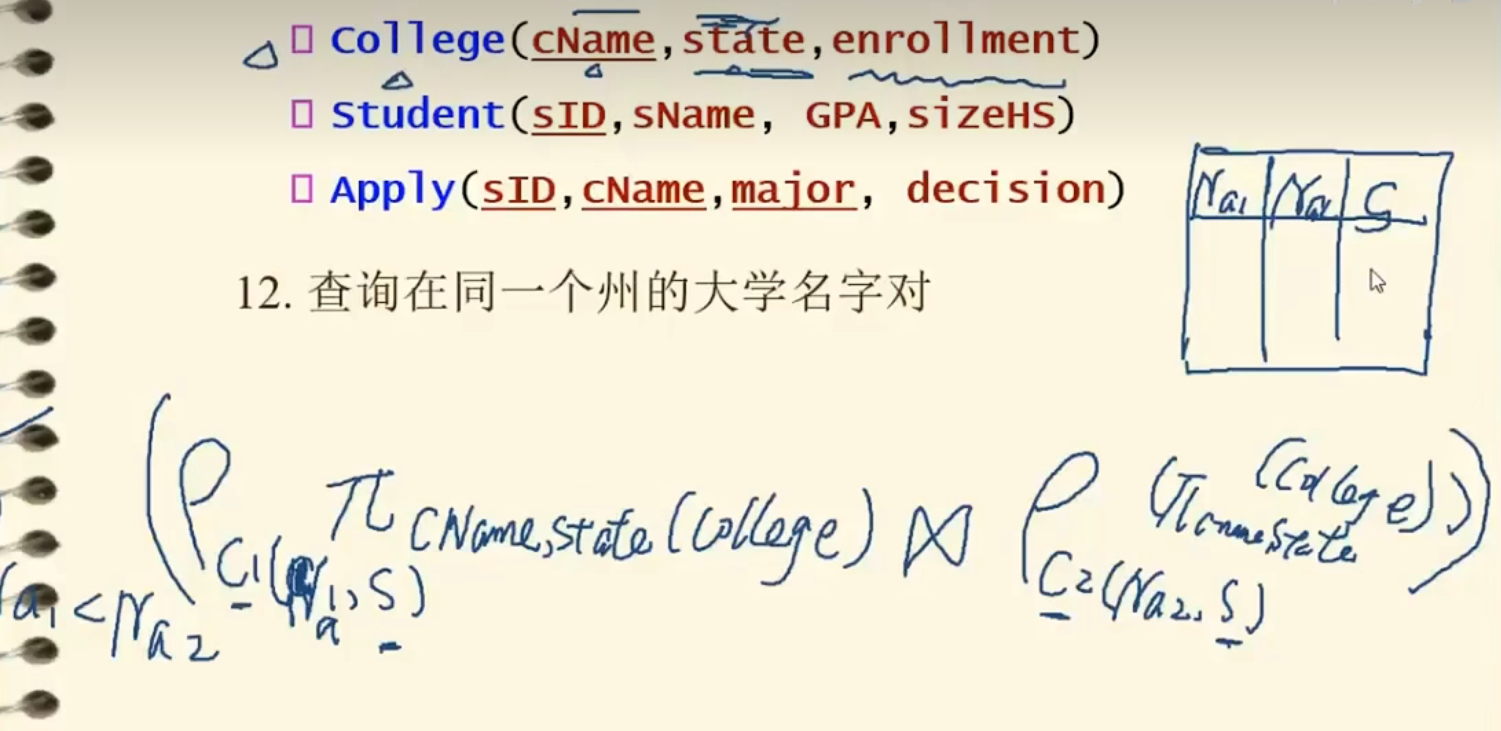 College(cName,state,enrollment)
Student(sID,sName, GPA,sizeHS)
Apply(sID,cName,major, decision)
Na1 Na2 S
12. 查询在同一个州的大学名字对
(ρ C1(Na1,S) π CName,State (College) ⋈ ρ C2(Na2,S) (π cname,State (College)))
a1 < Na2